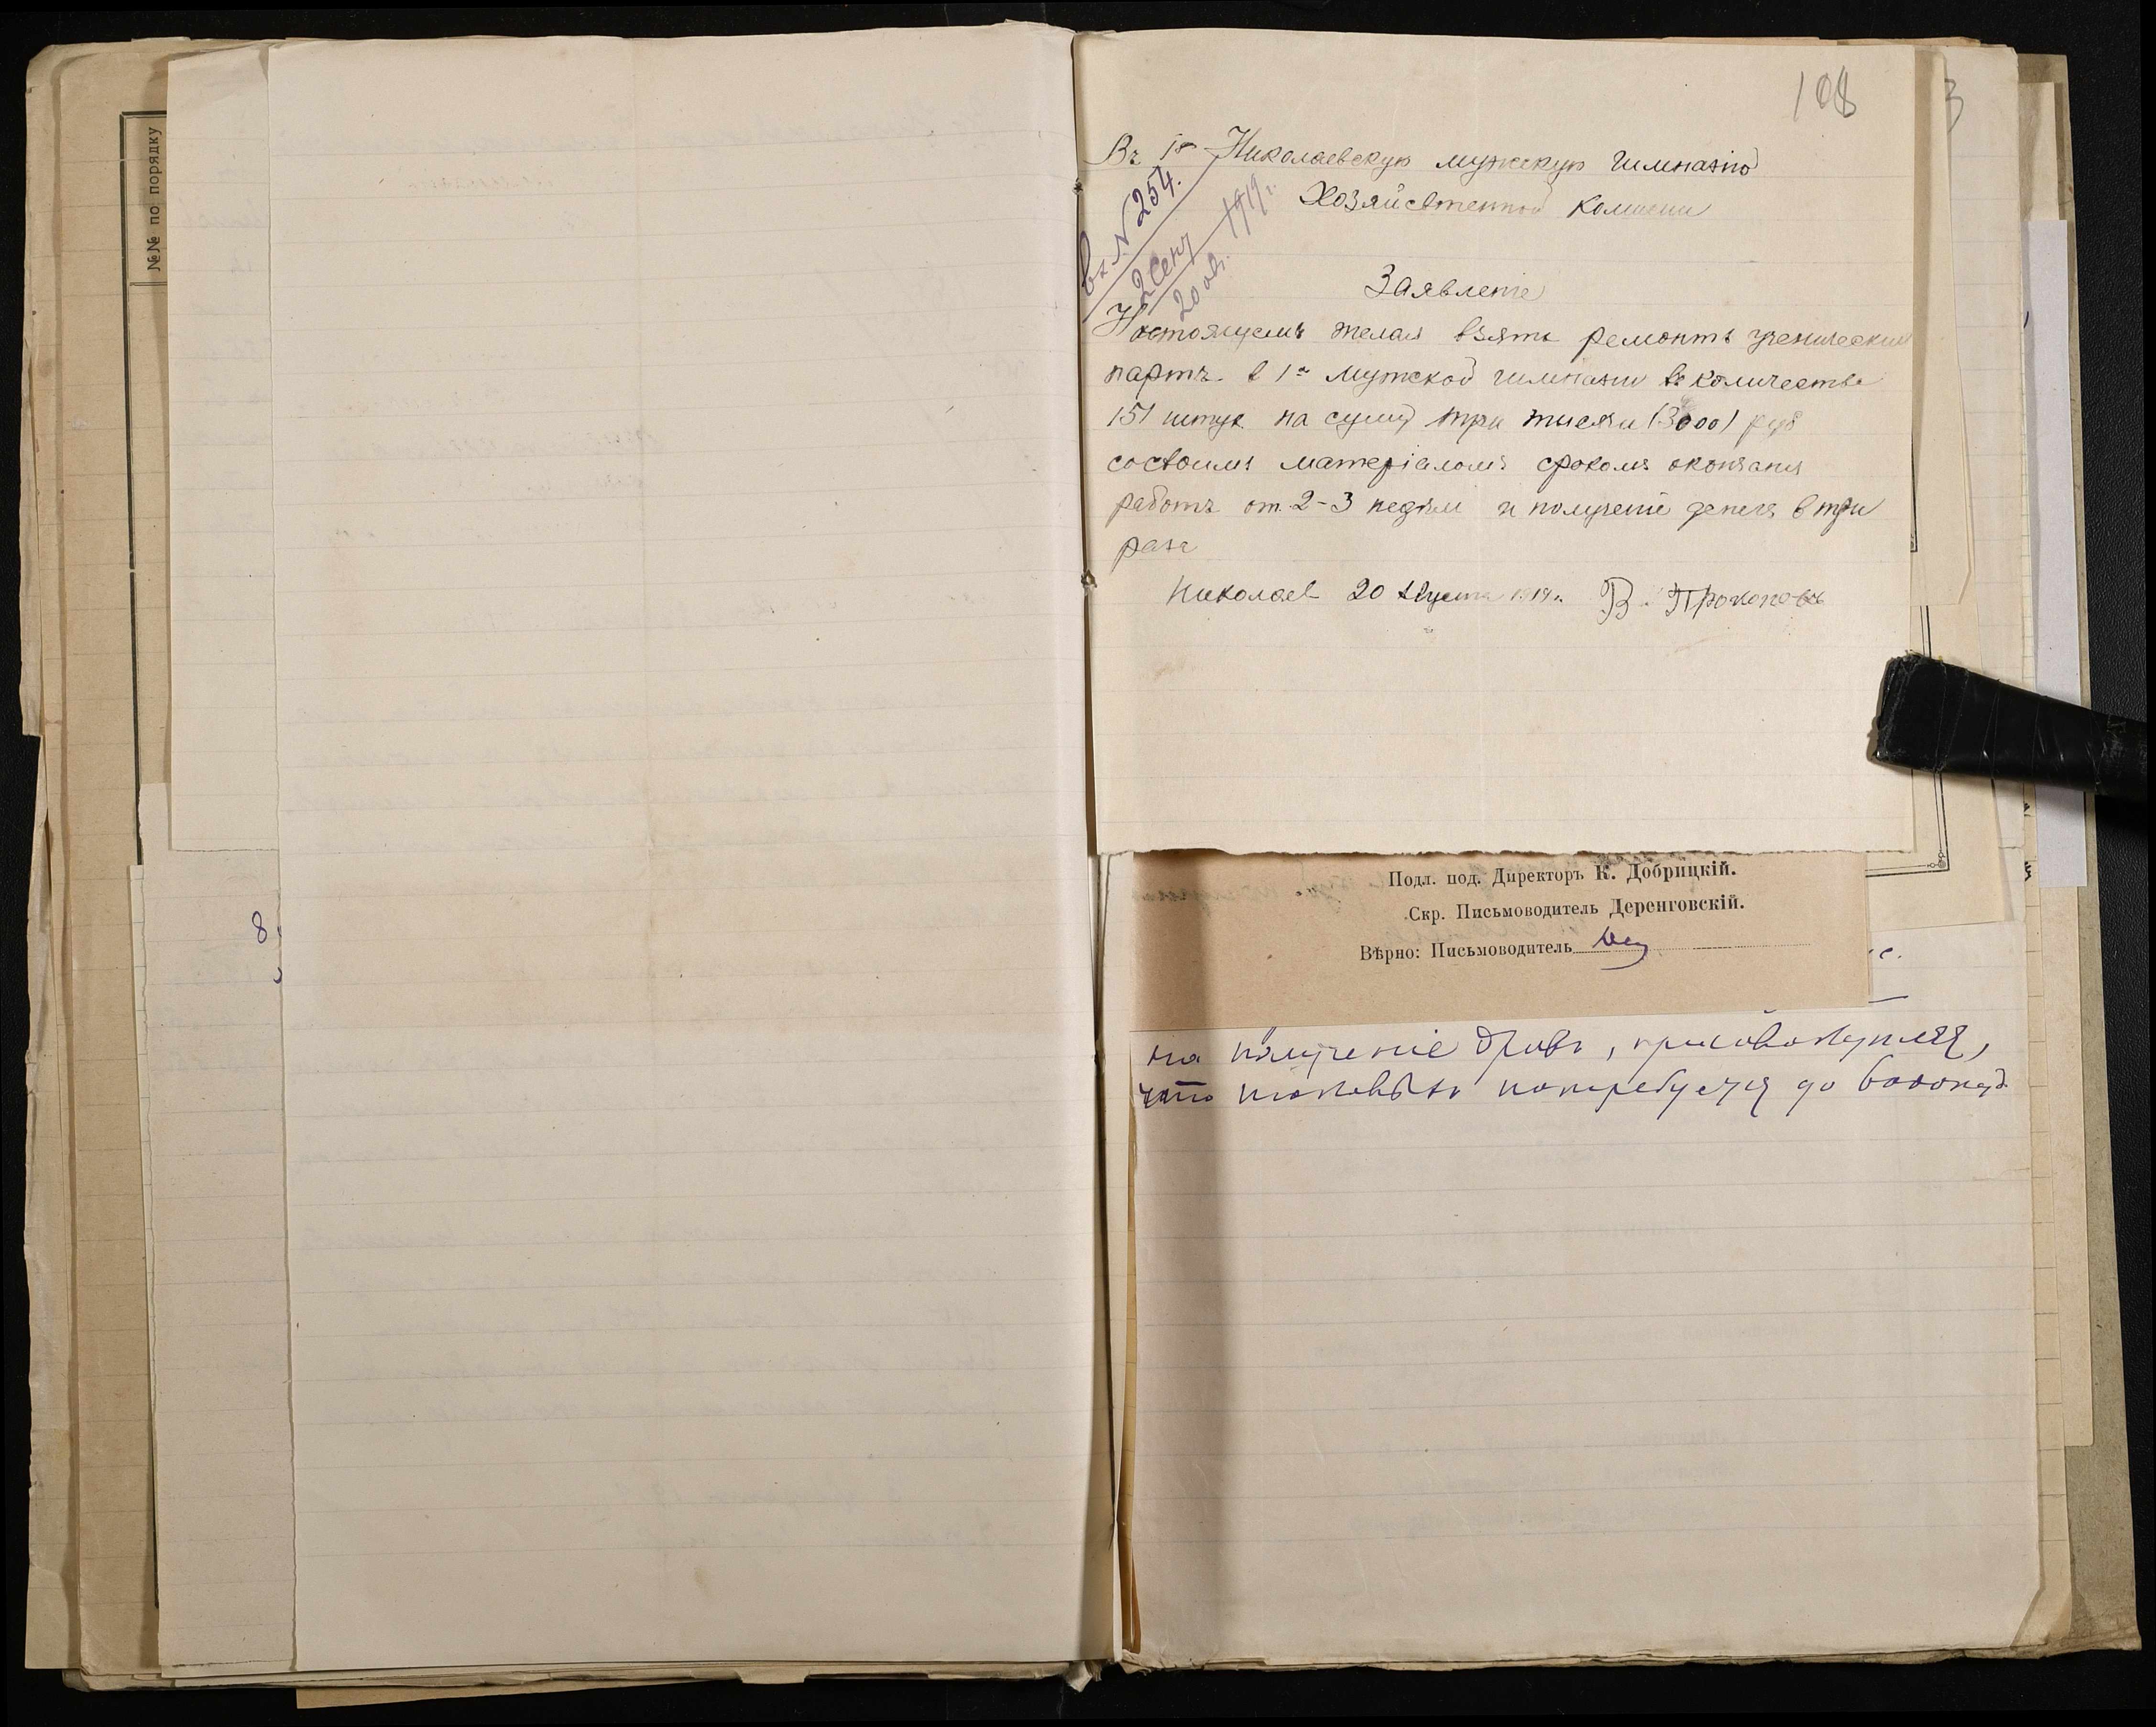 №№ по порядку
8
108
3
Въ 1ю Николаевскую мужскую гимназію
Хозяйственной Комисіи
Вх. N 254.
2 Сент 1919 г.
20 авг.
Заявленіе
Настоящемъ желая взять ремонтъ ученическихъ
партъ в 1й Мужской гимназіи въ количестве
151 штук на суму три тисячи (3000) руб
сосвоимъ матеріаломъ срокомъ окончания
работъ от 2-3 недѣли и полученіе денегъ в три
раза
Николаев 20 Августа 1919 г. В. Прокоповъ
Подл. под. Директоръ К. Добрицкій.
Скр. Письмоводитель Деренговскій.
Вѣрно: Письмоводитель
на полученіе дровъ, присовокупляя,
что таковыхъ потребуется до